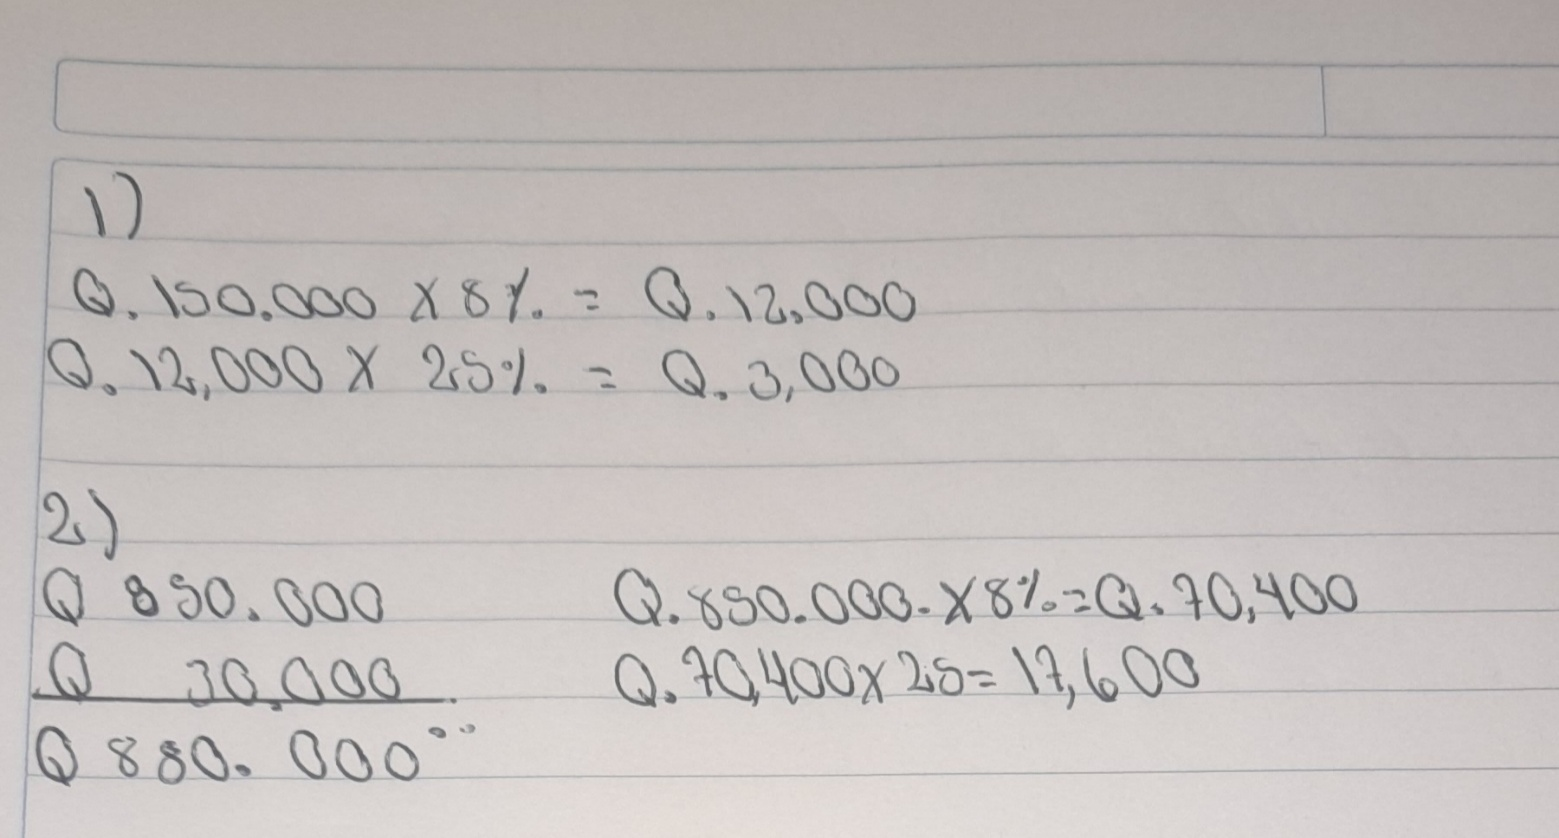 1)
Q. 150.000 X 8%. = Q. 12,000
Q. 12,000 X 25%. = Q. 3,000
2)
Q 850.000
Q 30.000
Q 880.000°°
Q. 850.000. X 8%. = Q. 70,400
Q. 70,400 X 25 = 17,600